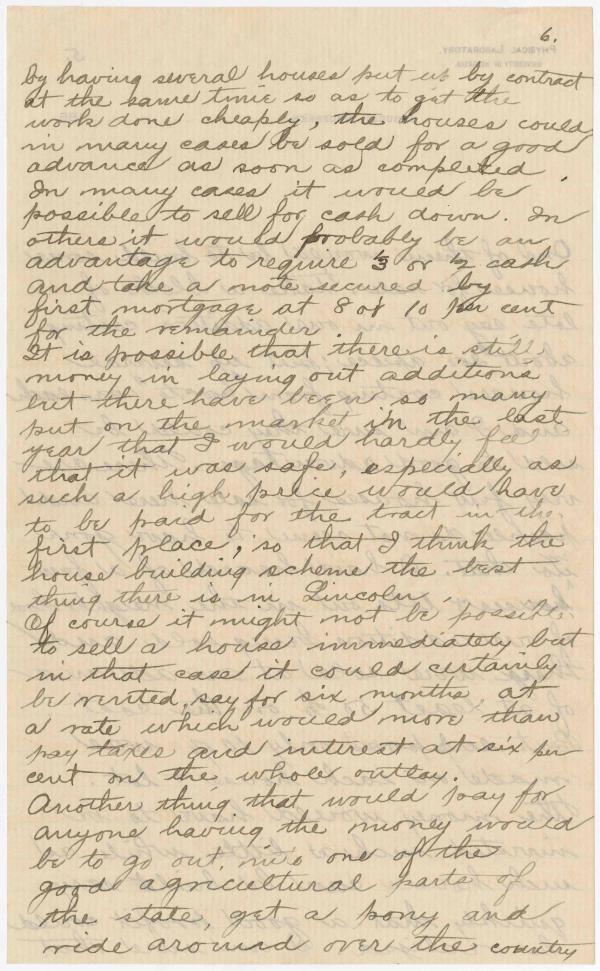 6.
PHYSICAL LABORATORY.
by having several houses put up by contract
at the same time so as to get the
work done cheaply, the houses could
in many cases be sold for a good
advance as soon as completed.
In many cases it would be
possible to sell for cash down. In
others it would probably be an
advantage to require 1/3 or 1/2 cash
and take a note secured by
first mortgage at 8 or 10 per cent
for the remainder.
It is possible that there is still
money in laying out additions
but there have been so many
put on the market in the last
year that I would hardly feel
that it was safe, especially as
such a high price would have
to be paid for the tract in the
first place, so that I think the
house building scheme the best
thing there is in Lincoln.
Of course it might not be possible
to sell a house immediately but
in that case it could certainly
be rented, say for six months at
a rate which would more than
pay taxes and interest at six per
cent on the whole outlay.
Another thing that would pay for
anyone having the money would
be to go out into one of the
good agricultural parts of
the state, get a pony and
ride around over the country